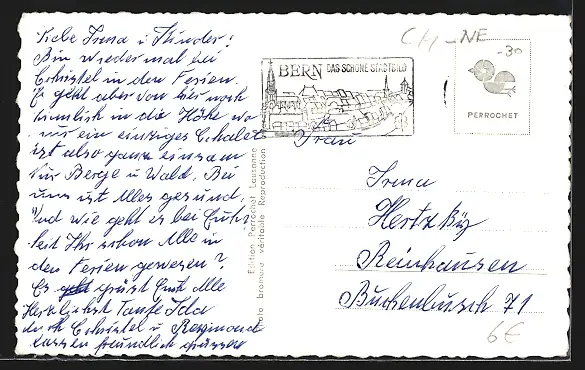 Liebe Irma u. Kinder!
Bin wieder mal bei
Christel in den Ferien.
Es geht aber von hier noch
ziemlich in die Höhe wo
nur ein einziges Chalet
ist also ganz einsam
Nur Berge u Wald. Bei
uns ist Alles gesund.
Und wie geht es bei Euch
seit Ihr schon Alle in
den Ferien gewesen?
Es grüsst Euch alle
Herzlichst Tante Ida
auch Christel u. Raymond
lassen freundlich grüssen
Edition Perrochet Lausanne
bromure véritable Reproduction
BERN DAS SCHÖNE STADTBILD
CH-NE
-30
PERROCHET
Frau
Irma
Hertz
Reinhausen
Buchenbusch 71
6€